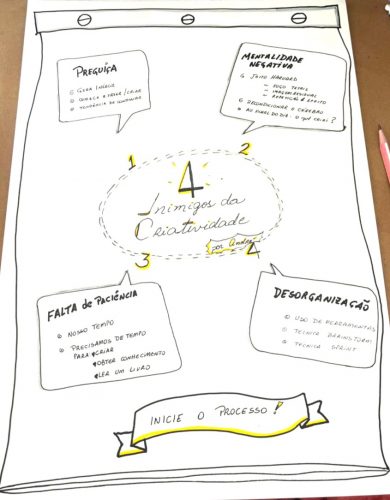 PREGUIÇA
GERA INÉRCIA
COMECE A FAZER / CRIAR
TENDÊNCIA DE CONTINUAR
MENTALIDADE
NEGATIVA
JOGO
FOCO TETRIS
IMAGEM RESIDUAL
REPETIÇÃO E EFEITO
RECONDICIONAR O CÉREBRO
AO FINAL DO DIA: O QUE CRIEI?
1
2
4
Inimigos da
Criatividade
por André
3
4
FALTA de PACIÊNCIA
NOSSO TEMPO
PRECISAMOS DE TEMPO
PARA CRIAR
OBTER CONHECIMENTO
LER UM LIVRO
DESORGANIZAÇÃO
USO DE FERRAMENTAS
TECNICA BRAINSTORM
TECNICA SPRINT
INICIE O PROCESSO!